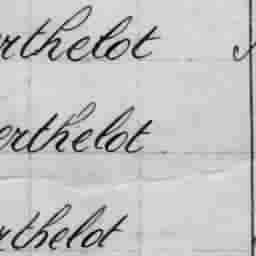 rthelot
erthelot
rthelot